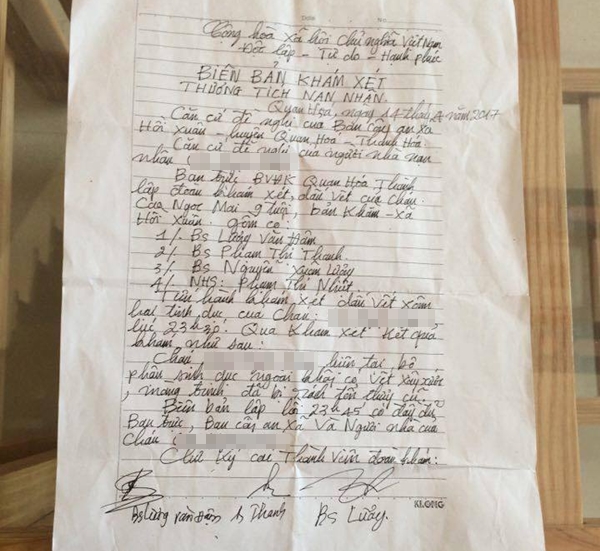 Cộng hòa xã hội chủ nghĩa Việt Nam
Độc lập - Tự do - Hạnh phúc
BIÊN BẢN KHÁM XÉT
THƯƠNG TÍCH NẠN NHÂN
Quan Hóa, ngày 14 tháng năm 2017
Căn cứ đề nghị của Ban công an xã
Hồi Xuân - huyện Quan Hóa - Thanh Hóa
Căn cứ đề nghị của người nhà nạn
nhân (
Ban trực BVĐK Quan Hóa Thành
lập đoàn khám xét, dấu vết của cháu.
9 tuổi, bản Khằm - xã
Hồi Xuân gồm có
1/. Bs Lương Văn Đậm
2/. Bs Phạm Thị Thanh
3/. Bs Nguyễn Xuân Lưỡng
4/. NHS: Phạm Thị Nhót
Tiến hành khám xét dấu vết xâm
hại tình dục của cháu:
lúc 23h30. Qua khám xét kết quả
khám như sau:
Cháu hiện tại bộ
phận sinh dục ngoài không có vết xây xước
, màng trinh đã bị rách tổn thương cũ.
Biên bản lập lúc 23h45 có đầy đủ
Ban trực, Ban công an xã và Người nhà của
Cháu (
Chữ ký các Thành viên đoàn khám:
Bs Lương Văn Đậm
Bs Thanh
Bs Lưỡng
KLONG